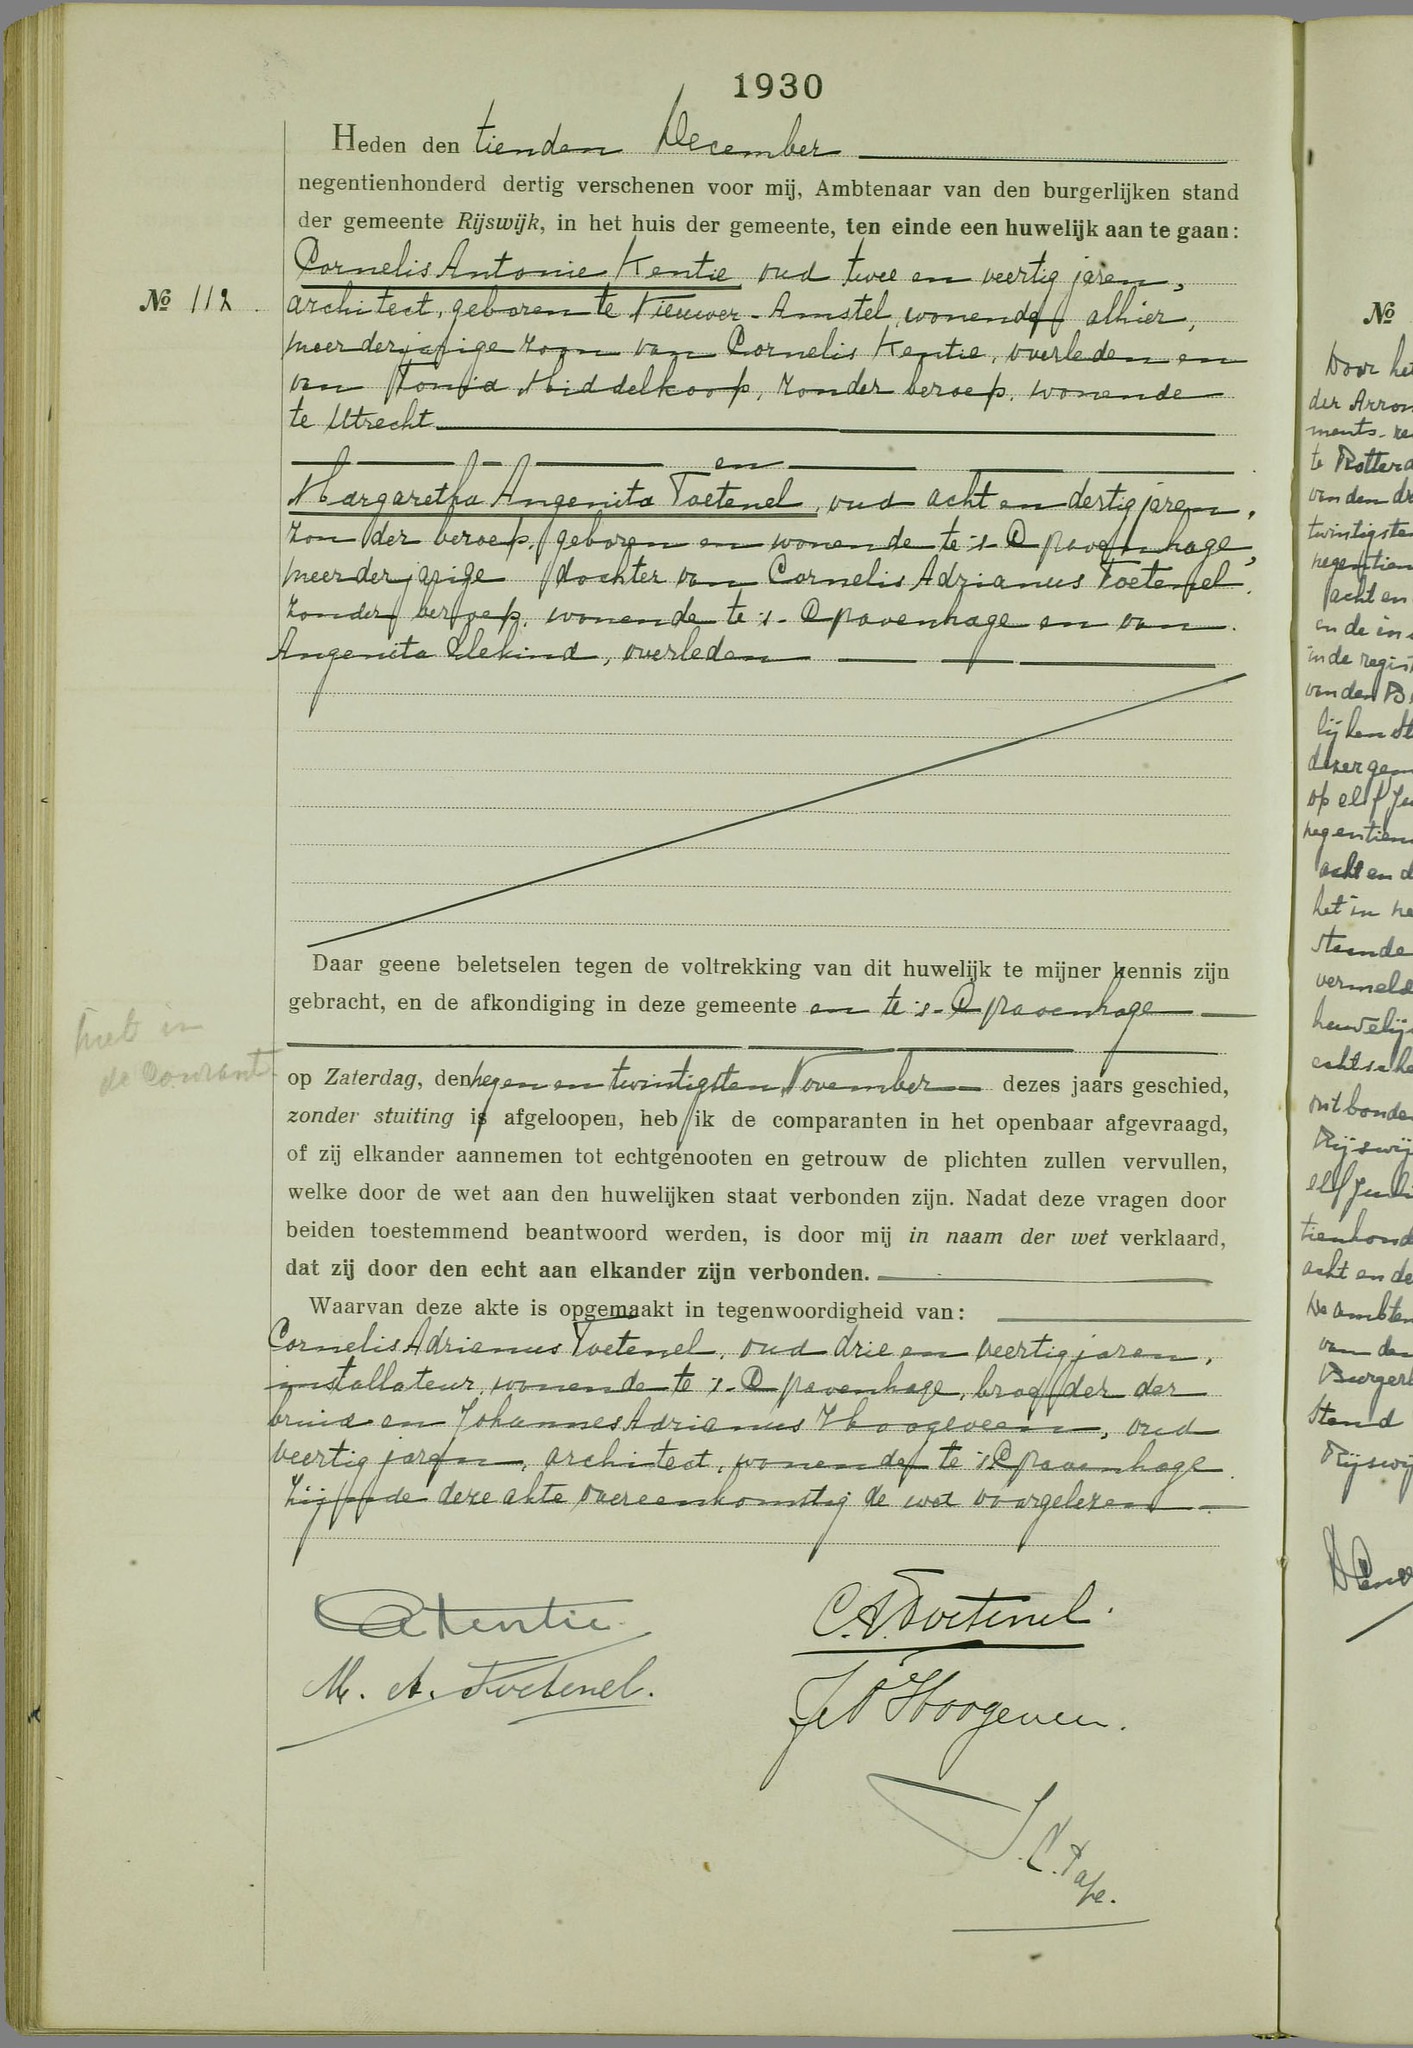 1930
Heden den tienden December
negentienhonderd dertig verschenen voor mij, Ambtenaar van den burgerlijken stand
der gemeente Rijswijk, in het huis der gemeente, ten einde een huwelijk aan te gaan:
Cornelis Antonie Kentie oud twee en veertig jaren,
No 112.
architect, geboren te Nieuwer-Amstel, wonende alhier,
meerderjarige zoon van Cornelis Kentie, overleden en
van Tonia Middelkoop, zonder beroep, wonende
te Utrecht
en
Margaretha Angenita Toetenel, oud acht en dertig jaren,
zonder beroep, geboren en wonende te 's-Gravenhage,
meerderjarige dochter van Cornelis Adrianus Toetenel
zonder beroep, wonende te 's-Gravenhage en van
Angenita Llekind, overleden
Daar geene beletselen tegen de voltrekking van dit huwelijk te mijner kennis zijn
gebracht, en de afkondiging in deze gemeente en te 's-Gravenhage
niet in
de Courant
op Zaterdag, den negen en twintigsten November dezes jaars geschied,
zonder stuiting is afgeloopen, heb ik de comparanten in het openbaar afgevraagd,
of zij elkander aannemen tot echtgenooten en getrouw de plichten zullen vervullen,
welke door de wet aan den huwelijken staat verbonden zijn. Nadat deze vragen door
beiden toestemmend beantwoord werden, is door mij in naam der wet verklaard,
dat zij door den echt aan elkander zijn verbonden.
Waarvan deze akte is opgemaakt in tegenwoordigheid van:
Cornelis Adrianus Toetenel, oud drie en veertig jaren,
installateur, wonende te 's-Gravenhage, broeder der
bruid en Johannes Adrianus Hoogeveen, oud
veertig jaren, architect, wonende te 's Gravenhage
Zijnde deze akte overeenkomstig de wet voorgelezen
CAKentie
C.A. Toetenel.
M. A. Toetenel.
JA Hoogeveen.
J.C. Pape.
No
Door het
der Arron
ments-re
te Rotterd
van den dr
twintigste
negentien
acht en
en de in
in de regist
van den B
lijken St
dezer gem
op elf Ju
negentien
acht en d
het in ne
staande
vermeld
huwelij
echtsche
ontbonde
Rijswij
elf Juli
tienhond
acht en de
De ambten
van den
Burgerl
Stand
Rijswij